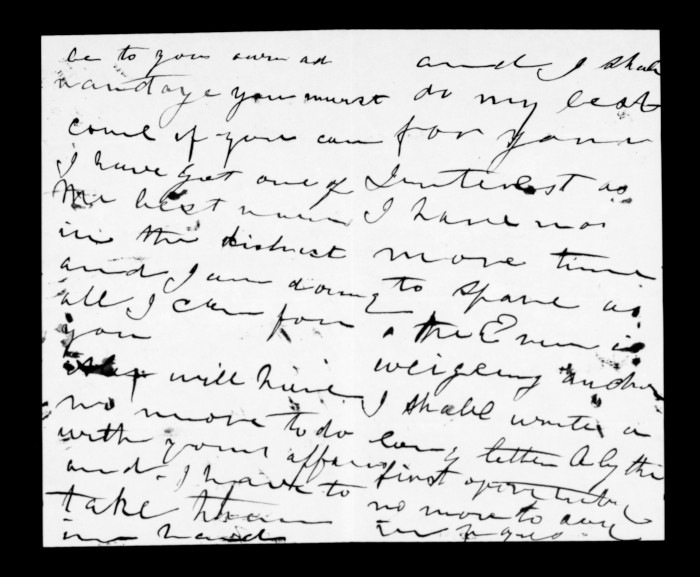 be to your own ad
vantage you must
come if you can
I have got one of
the best men
in the district
and I am doing
all I can for
you
will have
no more to do
with your affairs
and I have to
take them
in hand
and I shall
do my best
for your
Interest as
I have no
more time
to spare as
the Emu is
weigeing anchor
I shall write a
long letter by the
first opportuity
no more to say